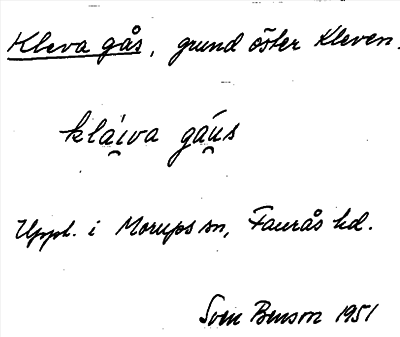 Kleva gås, grund öster Kleven.
kláiva gáus
Uppt. i Morups sn, Faurås hd.
Sven Benson 1951